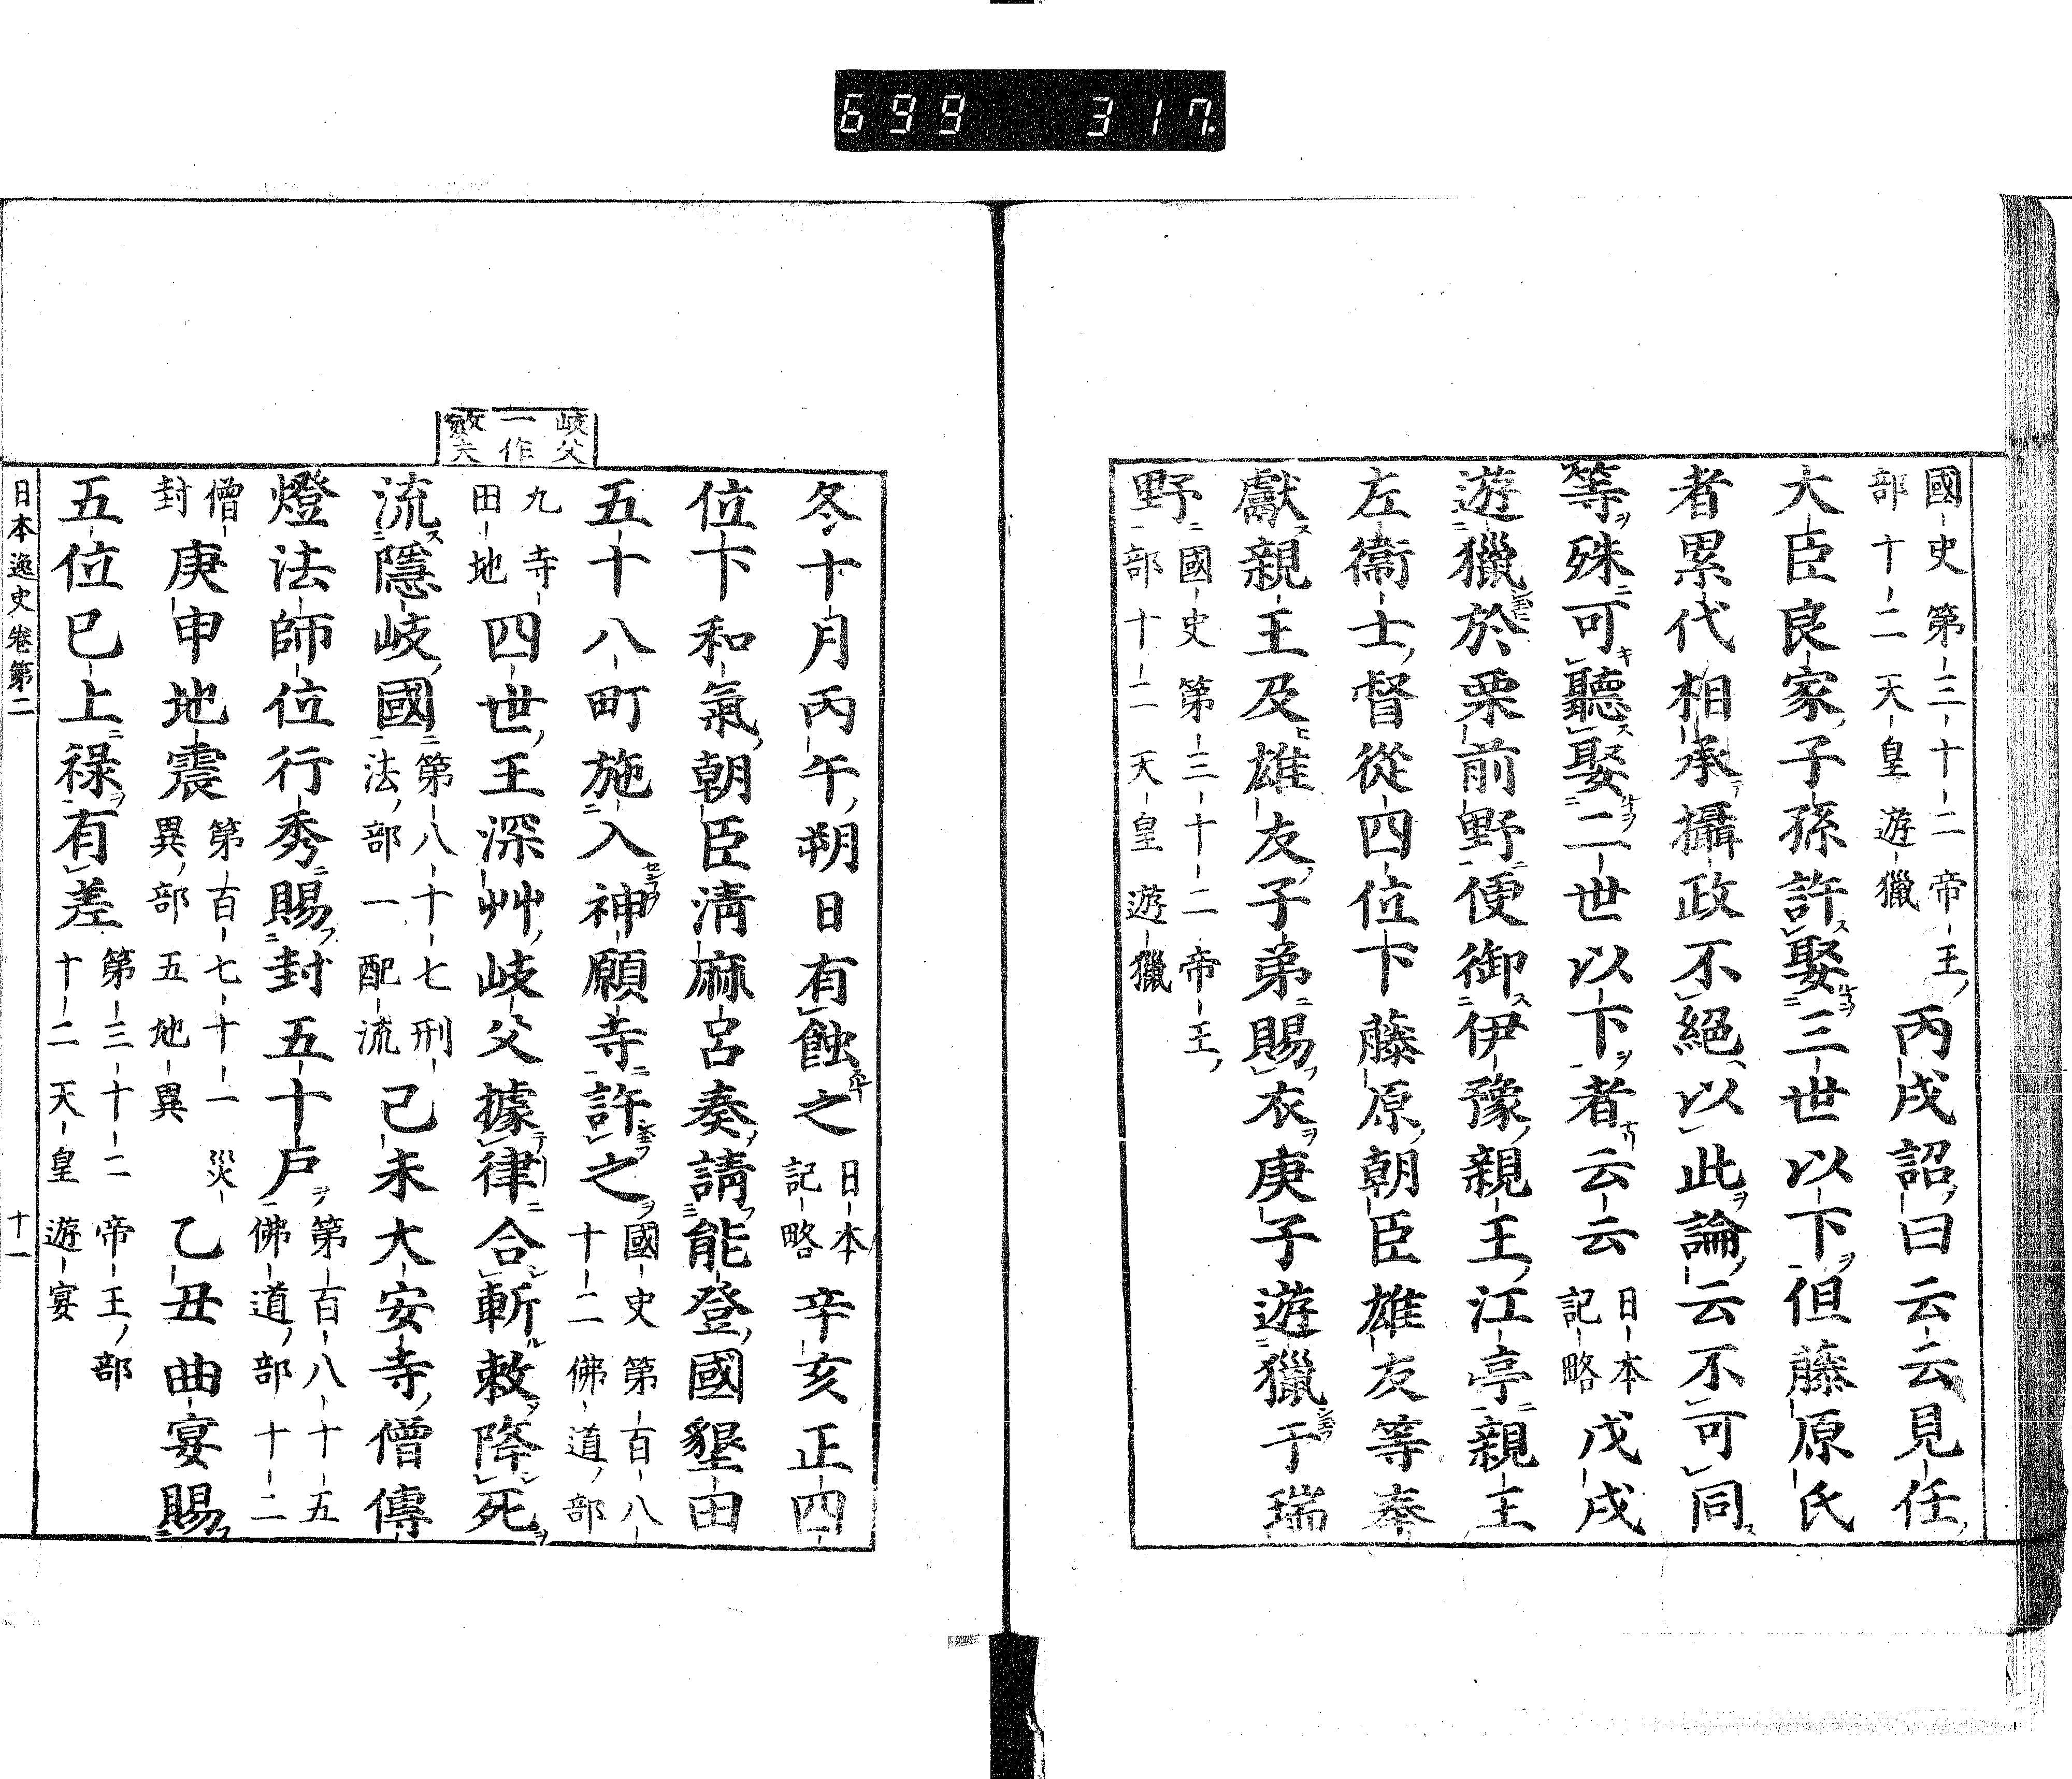 699 317
國史第三十二帝王
部十二天皇遊獵
丙戌詔曰云云見任
大臣良家子孫許娶三世以下但藤原氏
者累代相承攝政不絕以此論云不可同
等殊可聽娶二世以下者云云
日本
記略
戊戌
遊獵於栗前野便御伊豫親王江亭親王
左衞士督從四位下藤原朝臣雄友等奉
獻親王及雄友子弟賜衣庚子遊獵于瑞
野
國史第三十二帝王
部十二天皇遊獵
冬十月丙午朔日有蝕之
日本
記略
辛亥正四
位下和氣朝臣淸麻呂奏請能登國墾田
五十八町施入神願寺許之
國史第百八
十二佛道部
九寺
田地
四世王深艸岐父據律合斬敕降死
岐父
一作
敀夫
流隱岐國
第八十七刑
法部一配流
己未大安寺僧傳
燈法師位行秀賜封五十戶
第百八十五
佛道部十二
僧
封
庚申地震
第百七十一災
異部五地異
乙丑曲宴賜
五位已上祿有差
第三十二帝王部
十二天皇遊宴
日本逸史卷第二
十一